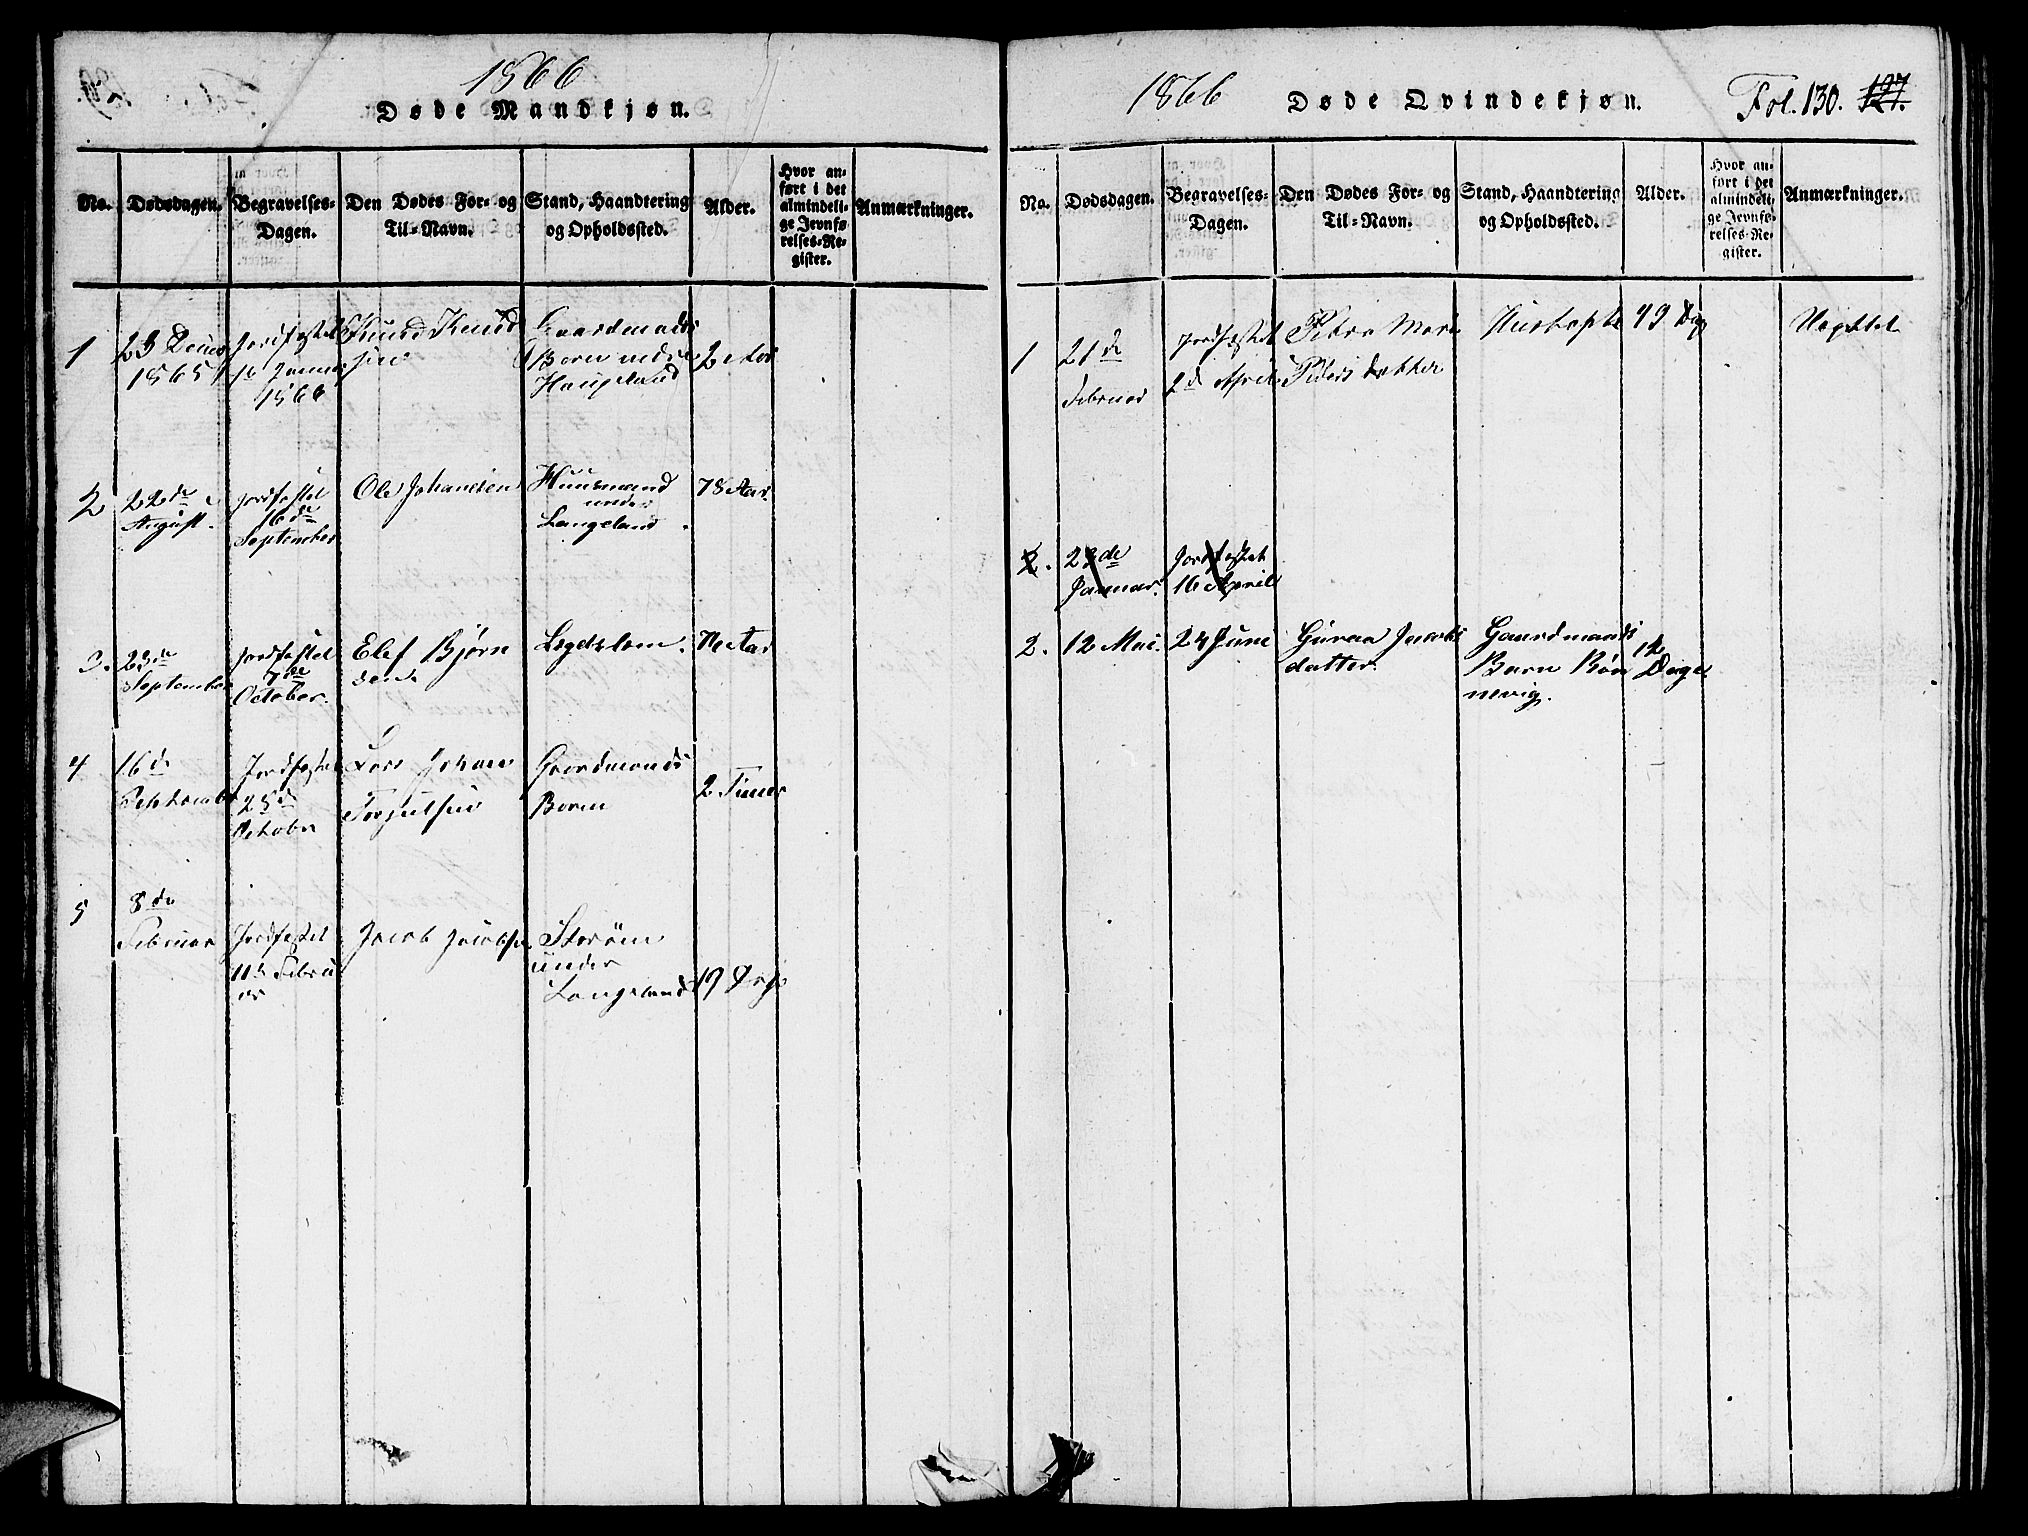 1866
Døde Mandkjøn.
No.
Dødsdagen.
Begravelses-
Dagen.
Den Dødes For- og
Til-Navn.
Stand, Haandtering
og Opholdssted.
Alder.
Hvor an-
ført i det
almindeli-
ge Jevnfø-
relses-Re-
gister.
Anmærkninger.
1
23
1865
Jordfæstet
1866
Knud Knud
sen
Gaardmands
Barn nedre
Haugeland
2 Aar
2
22de
August.
Jordfæstet
16de
September
Ole Johansen
Huusmand
under
Langeland.
78 Aar.
3.
23de
September
Jordfæstet
7de
October.
Elef Bjørn
sen
Lægdslem.
Aar
4
16de
Septembr
Jordfæstet
25de
Octobr
Lars Johan
Torjulsen
Gaardmands
Barn
2 Timer
5
8de
Februar
Jordfæstet
11te Febru
ar
Jacob Jacobsen
under
Langeland
19 Dage
1866
Døde Qvindekjøn.
Fol. 130. 127.
No.
Dødsdagen.
Begravelses-
Dagen.
Den Dødes For- og
Til-Navn.
Stand, Haandtering
og Opholdssted.
Alder.
Hvor an-
ført i det
almindeli-
ge Jevnfø-
relses-Re-
gister.
Anmærkninger.
1
21de
Februar
Jordfæstet
2de April
Petra Marie
Piders datter
49 Dag
Uægtet
2.
de
Januar.
Jordfæstet
16 April
2.
12 Mai.
24 Juni
Guren Jacobs
datter.
Gaardmands
Barn Røn
nevig.
12
Dage